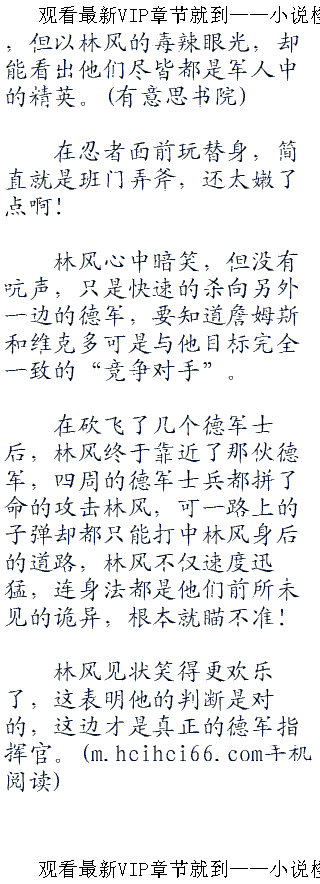 观看最新VIP章节就到——小说检
，但以林风的毒辣眼光，却
能看出他们尽皆都是军人中
的精英。(有意思书院)
在忍者面前玩替身，简
直就是班门弄斧，还太嫩了
点啊!
林风心中暗笑，但没有
吭声，只是快速的杀向另外
一边的德军，要知道詹姆斯
和维克多可是与他目标完全
一致的“竞争对手”。
在砍飞了几个德军士
后，林风终于靠近了那伙德
军，四周的德军士兵都拼了
命的攻击林风，可一路上的
子弹却都只能打中林风身后
的道路，林风不仅速度迅
猛，连身法都是他们前所未
见的诡异，根本就瞄不准!
林风见状笑得更欢乐
了，这表明他的判断是对
的，这边才是真正的德军指
挥官。(m.hcihci66.com手机
阅读)
观看最新VIP章节就到——小说检